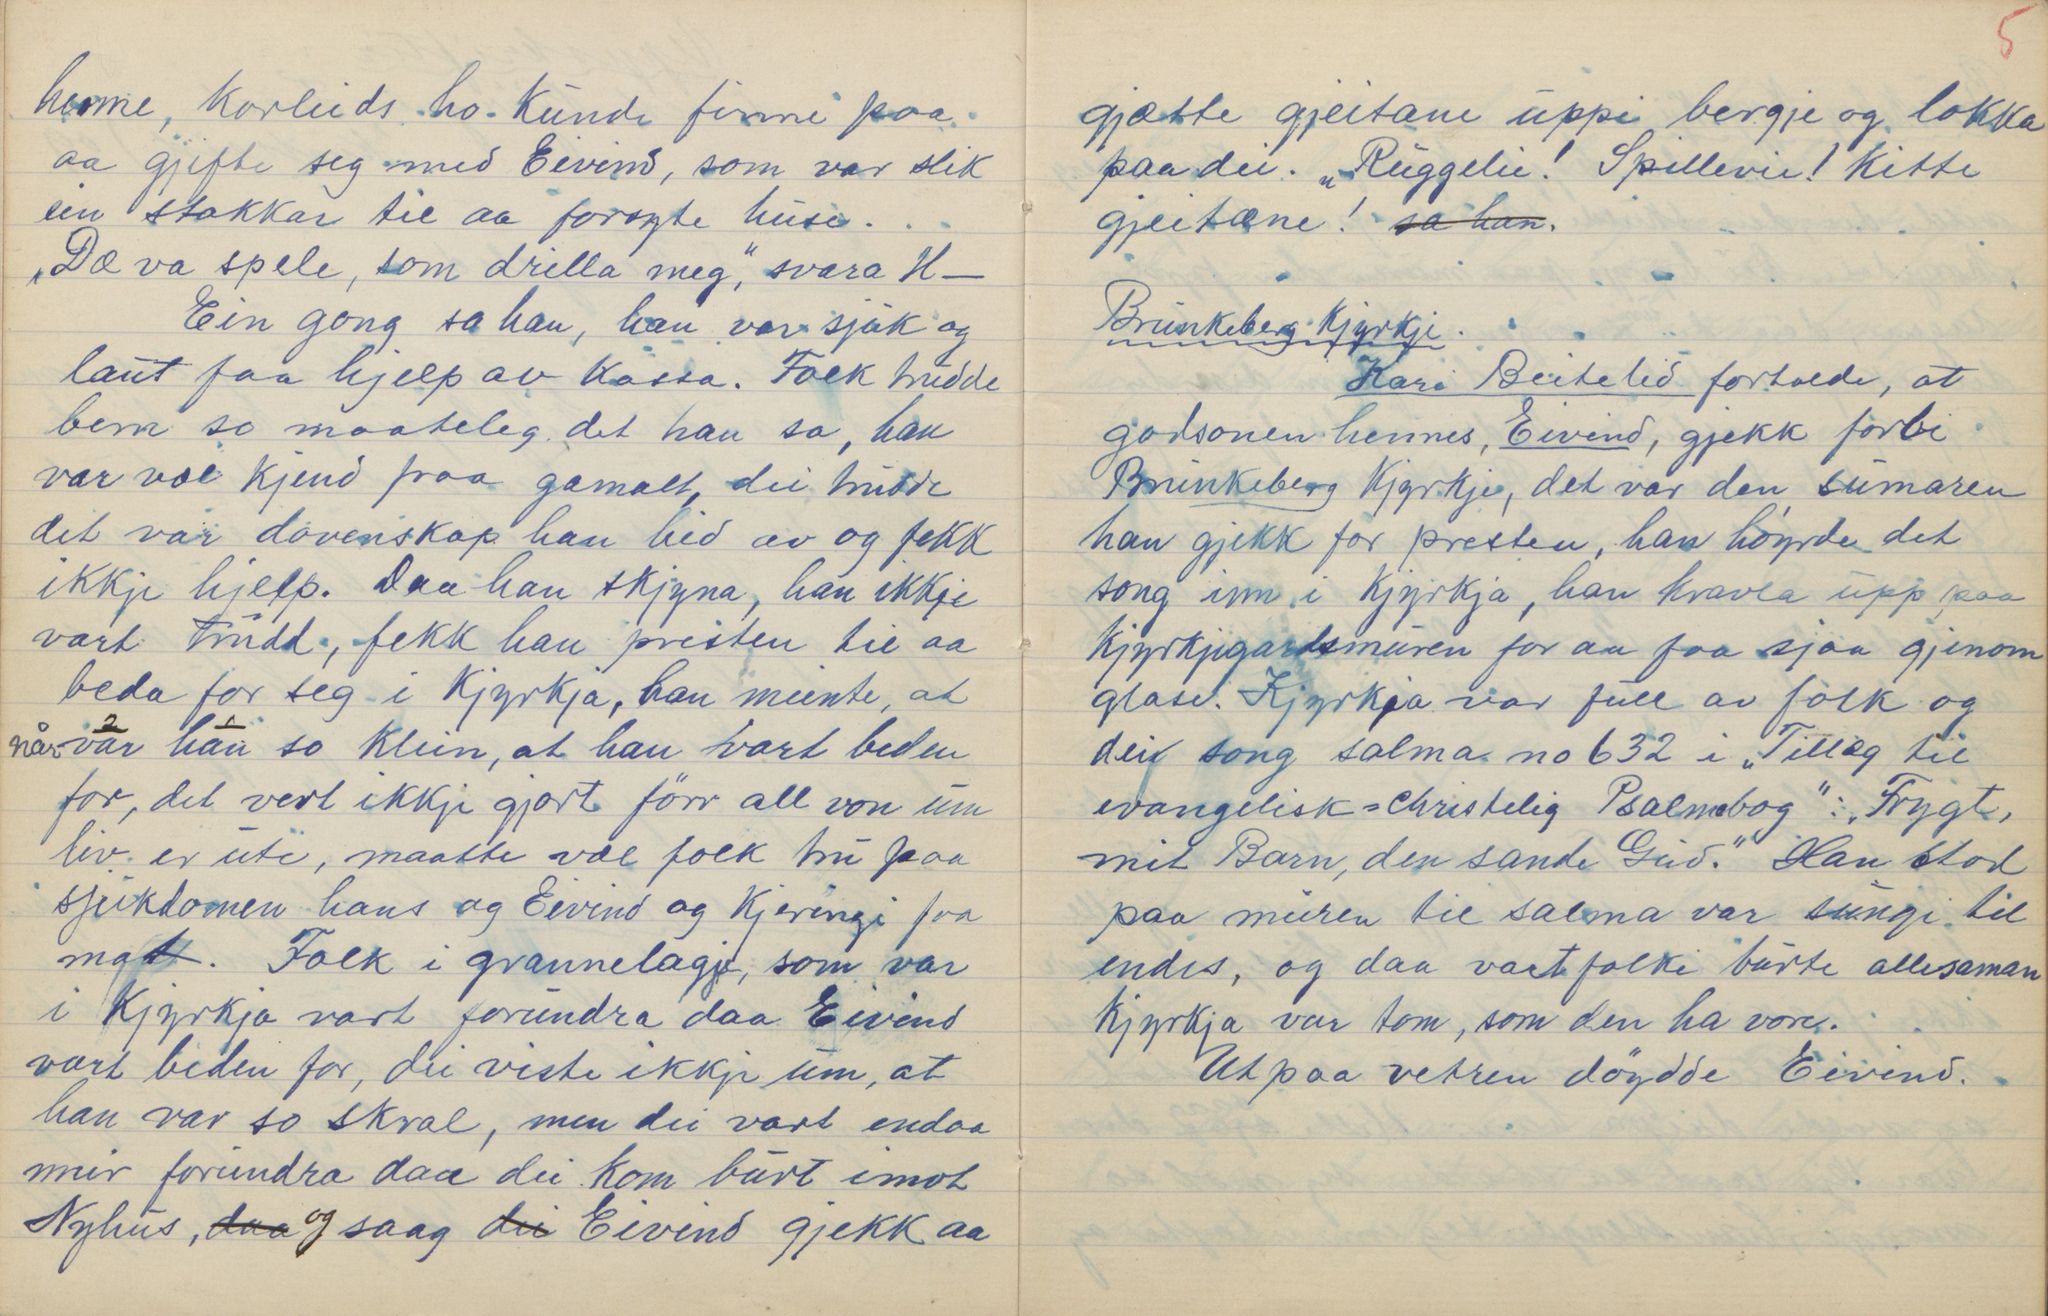 henne, korleids ho kunde finne paa
aa gjifte seg med Eivind, som var slik
ein stakkar til aa forsyte huse.
„Dæ va spele, som drilla meg", svara H—
Ein gong sa han, han var sjuk og
laut faa hjelp av kassa. Folk trudde
bern so maateleg det han sa, han
var væl kjend paa gamalt, dei trudde
det var dovenskap han leid av og fekk
ikkje hjelp. Daa han skjyna, han ikkje
vart trudd, fekk han presten til aa
beda for seg i kjyrkja, han meinte, at
når var 2 han 1 so klein, at han vart beden
for, det vert ikkje gjort förr all von um
liv er ute, maatte væl folk tru paa
sjukdomen hans og Eivind og kjeringi faa
mat. Folk i grannelagje, som var
i kjyrkja vart forundra daa Eivind
vart beden for, dei viste ikkje um, at
han var so skral, men dei vart endaa
meir forundra daa dei kom burt imot
Nyhus, daa og saag dei Eivind gjekk aa
5
gjætte gjeitane uppi bergje og lokka
paa dei. „Ruggelie! Spillevie! Kitte
gjeitæne! sa han.
Brunkeberg kjyrkje.
Kari Beitelid fortalde, at
godsonen hennes, Eivind, gjekk forbi
Brunkeberg kjyrkje, det var den sumaren
han gjekk for presten, han höyrde det
song inn i kjyrkja, han kravla upp paa
kjyrkjegardsmuren for aa faa sjaa gjenom
glase. Kjyrkja var full av folk og
dei song salma no 632 i „Tillæg til
evangelisk=christelig Psalmebog": „Frygt,
mit Barn, den sande Gud." Han stod
paa muren til salma var sungi til
endes, og daa vart folki burte allesaman
kjyrkja var tom, som den ha vore.
Ut paa vetren döydde Eivind.